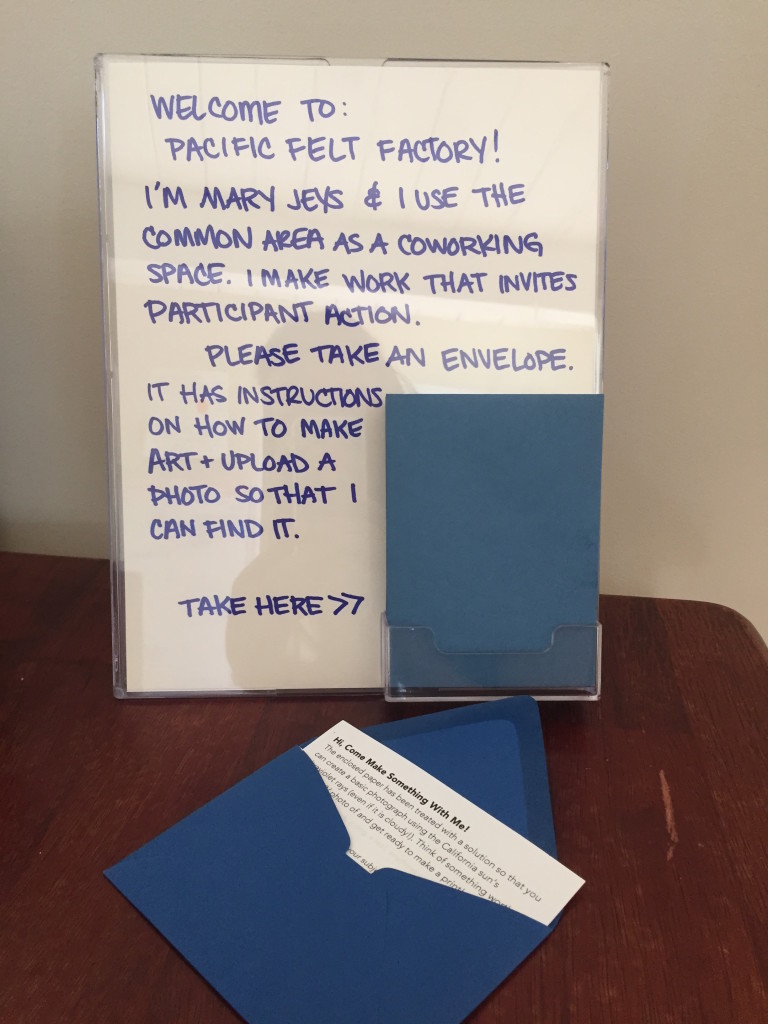 WELCOME TO:
PACIFIC FELT FACTORY!
I'M MARY JEYS & I USE THE
COMMON AREA AS A COWORKING
SPACE. I MAKE WORK THAT INVITES
PARTICIPANT ACTION.
PLEASE TAKE AN ENVELOPE.
IT HAS INSTRUCTIONS
ON HOW TO MAKE
ART + UPLOAD A
PHOTO SO THAT I
CAN FIND IT.
TAKE HERE >>
Hi, Come Make Something With Me!
The enclosed paper has been treated with a solution so that you
can create a basic photograph using the California sun's
rays (even if it is cloudy!). Think of something
photo of and get ready to make a